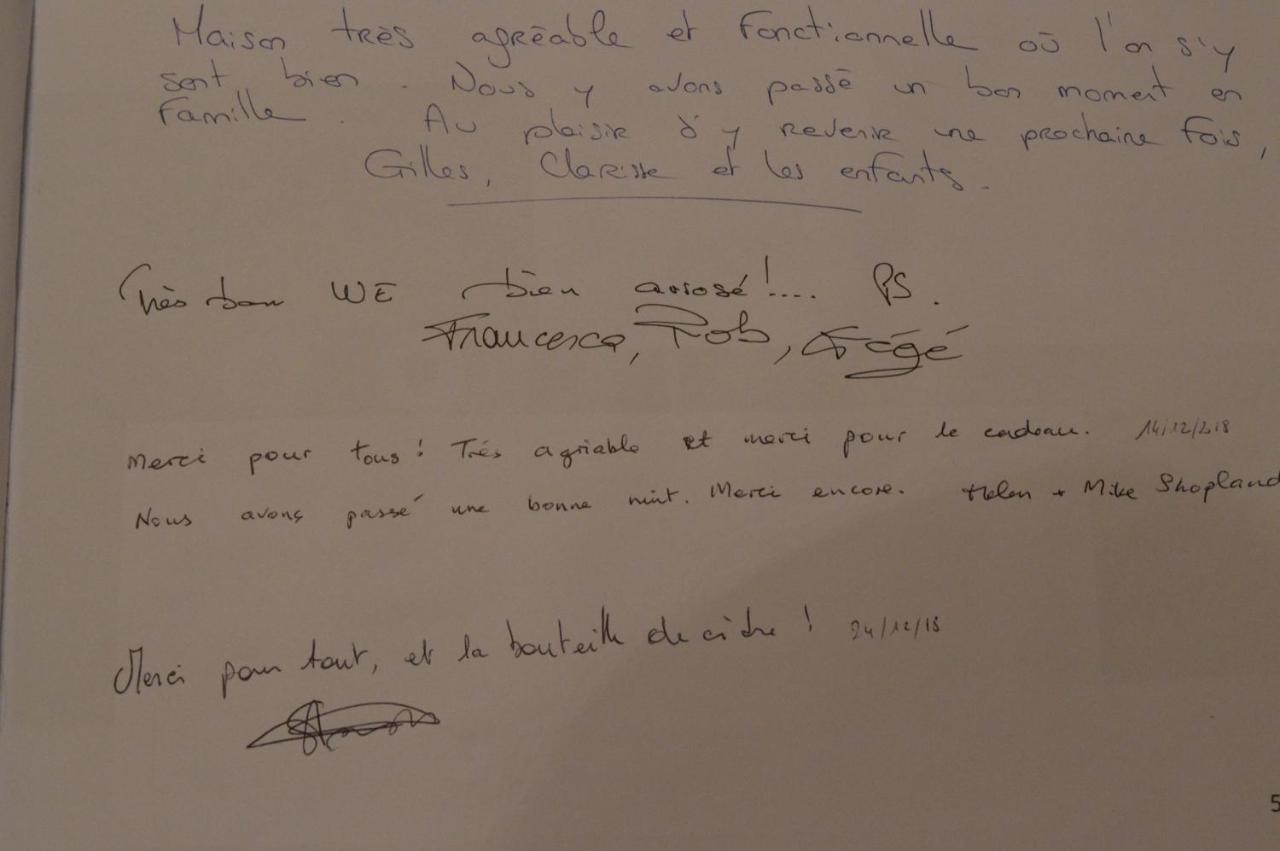 Maison très agréable et fonctionnelle où l'on s'y
sent bien. Nous y avons passé un bon moment en
famille. Au plaisir d'y revenir une prochaine fois,
Gilles, Clarisse et les enfants.
Très bon WE bien arrosé !.... PS.
Francesco, Rob, Fégé
Merci pour tous ! Trés agriable et merci pour le cadeau. 14/12/218
Nous avons passé une bonne nuit. Merci encore. Helen + Mike Shopland
Merci pour tout, et la bouteille de cidre ! 24/12/18
5